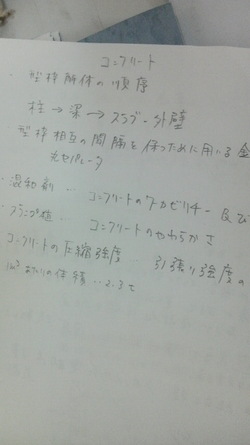 コンクリート
・型枠解体の順序
柱→梁→スラブー外壁
型枠相互の間隔を保つために用いる金
セパレータ
・混和剤 … コンクリートのワーカビリチー及び
・スランプ値 … コンクリートのやわらかさ
コンクリートの圧縮強度 … 引張り強度の
1m³あたりの体積 … 2.3t